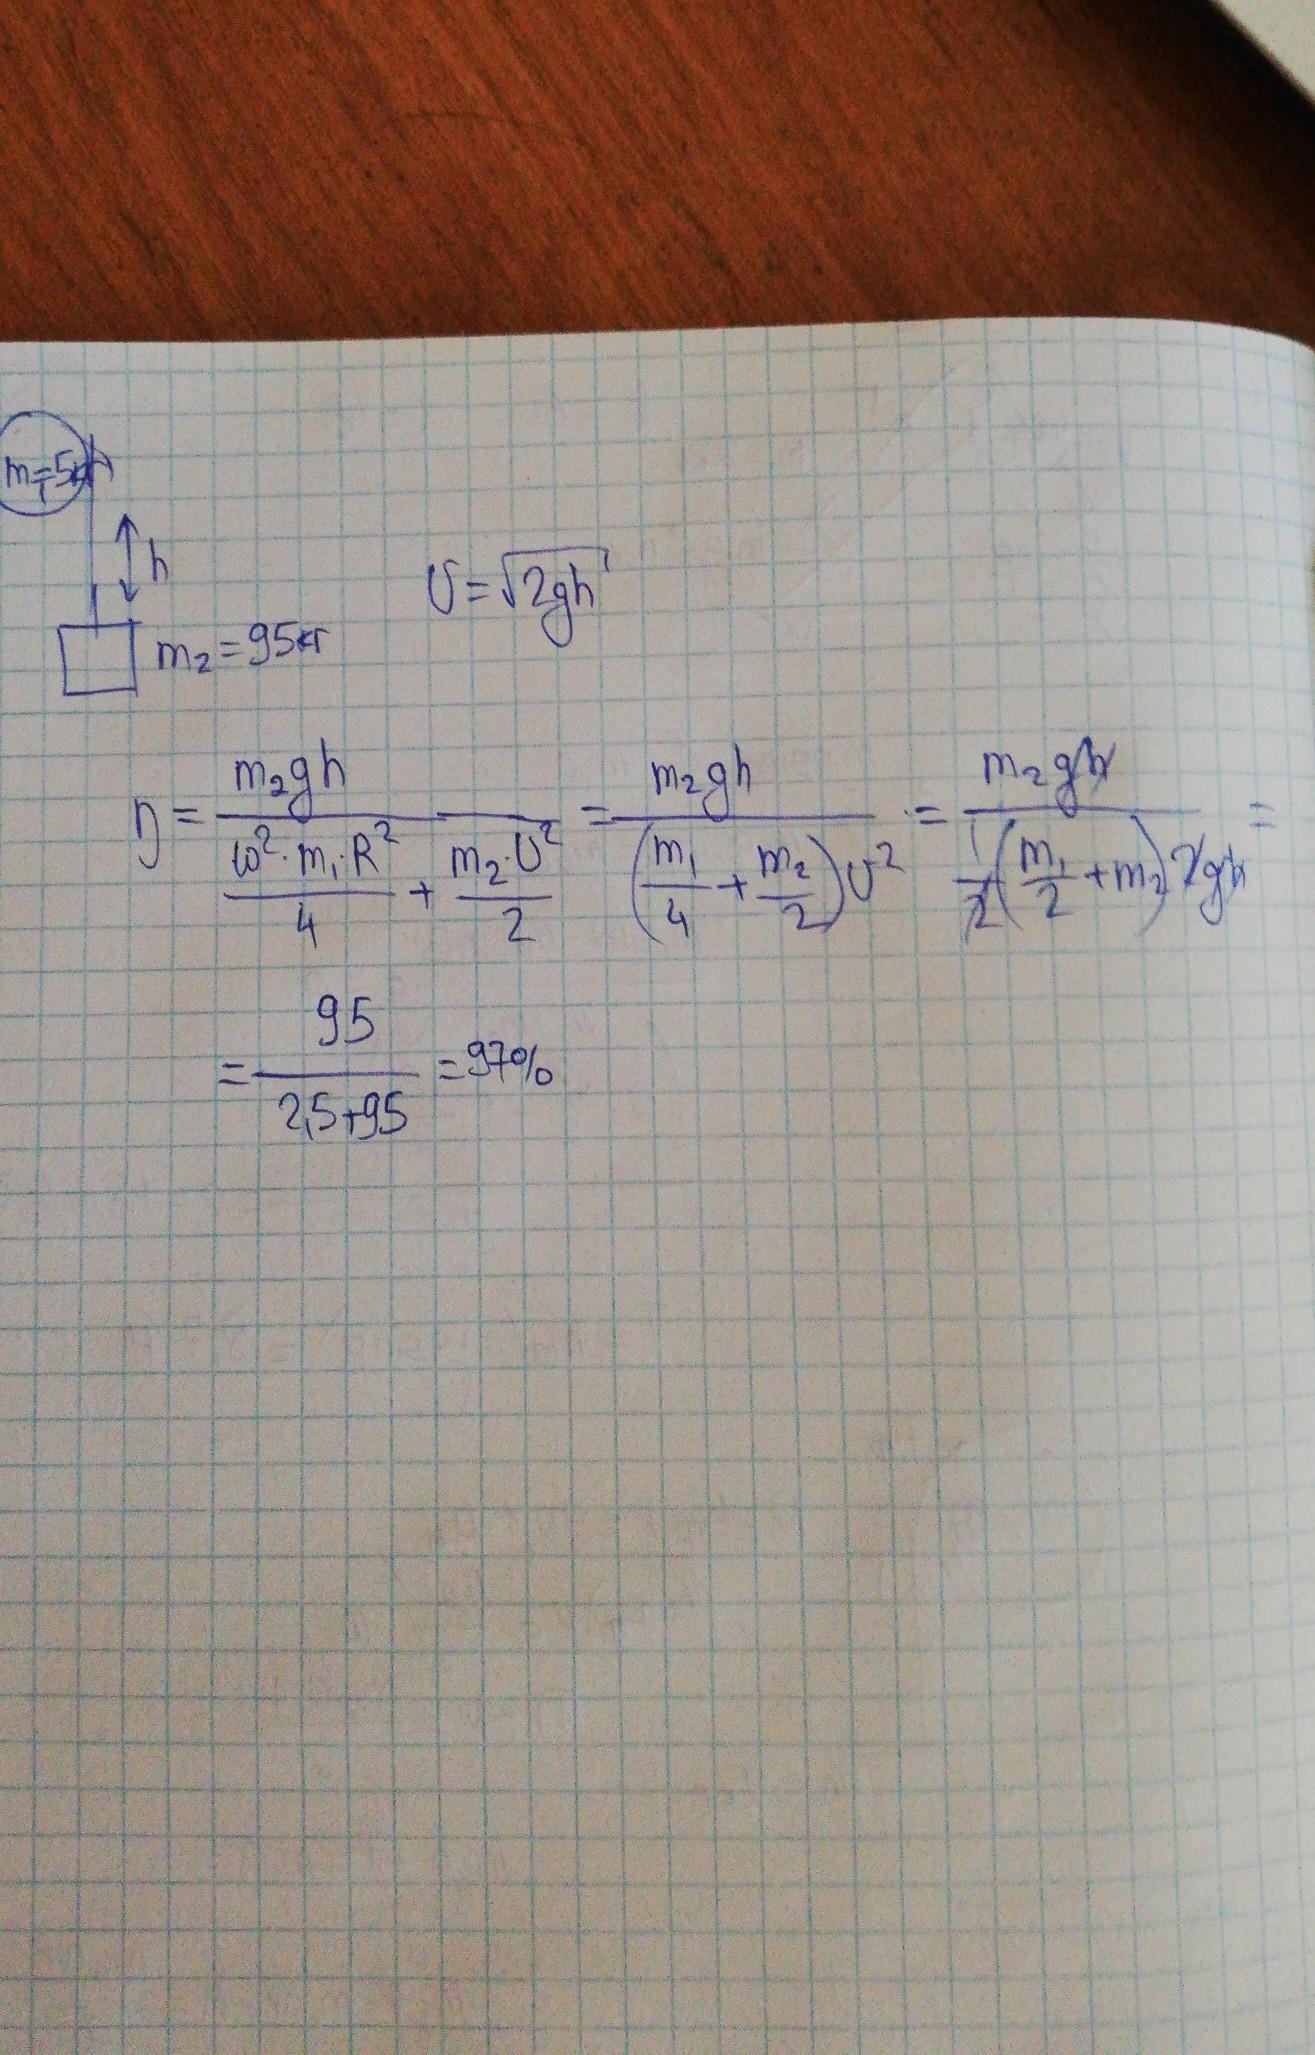 m₁=5кг
h
υ=√2gh
m₂=95кг
η = m₂gh / (ω²·m₁·R²/4 + m₂·υ²/2) = m₂gh / ((m₁/4 + m₂/2)υ²) = m₂gh / (1/2(m₁/2 + m₂)2gh) =
= 95 / (2,5+95) = 97%